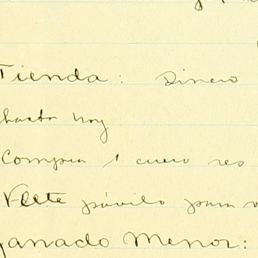 Tienda: Dinero
hasta hoy
Compra 1 cuero res
pávilo para
Ganado Menor: